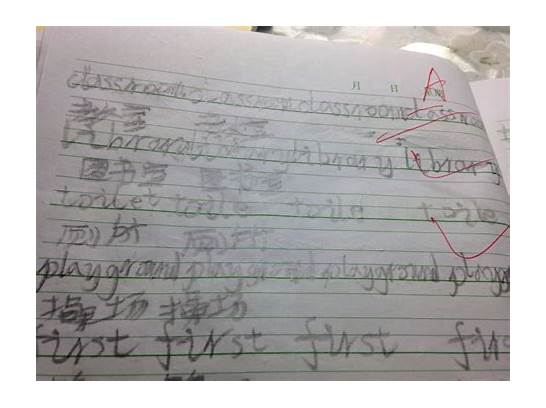 月 日 A
classroom classroom classroom classroom
教室 教室
library library library library
图书室 图书室
toilet toile toile toile
厕所 厕所
playground playground playground
操场 操场
first first first